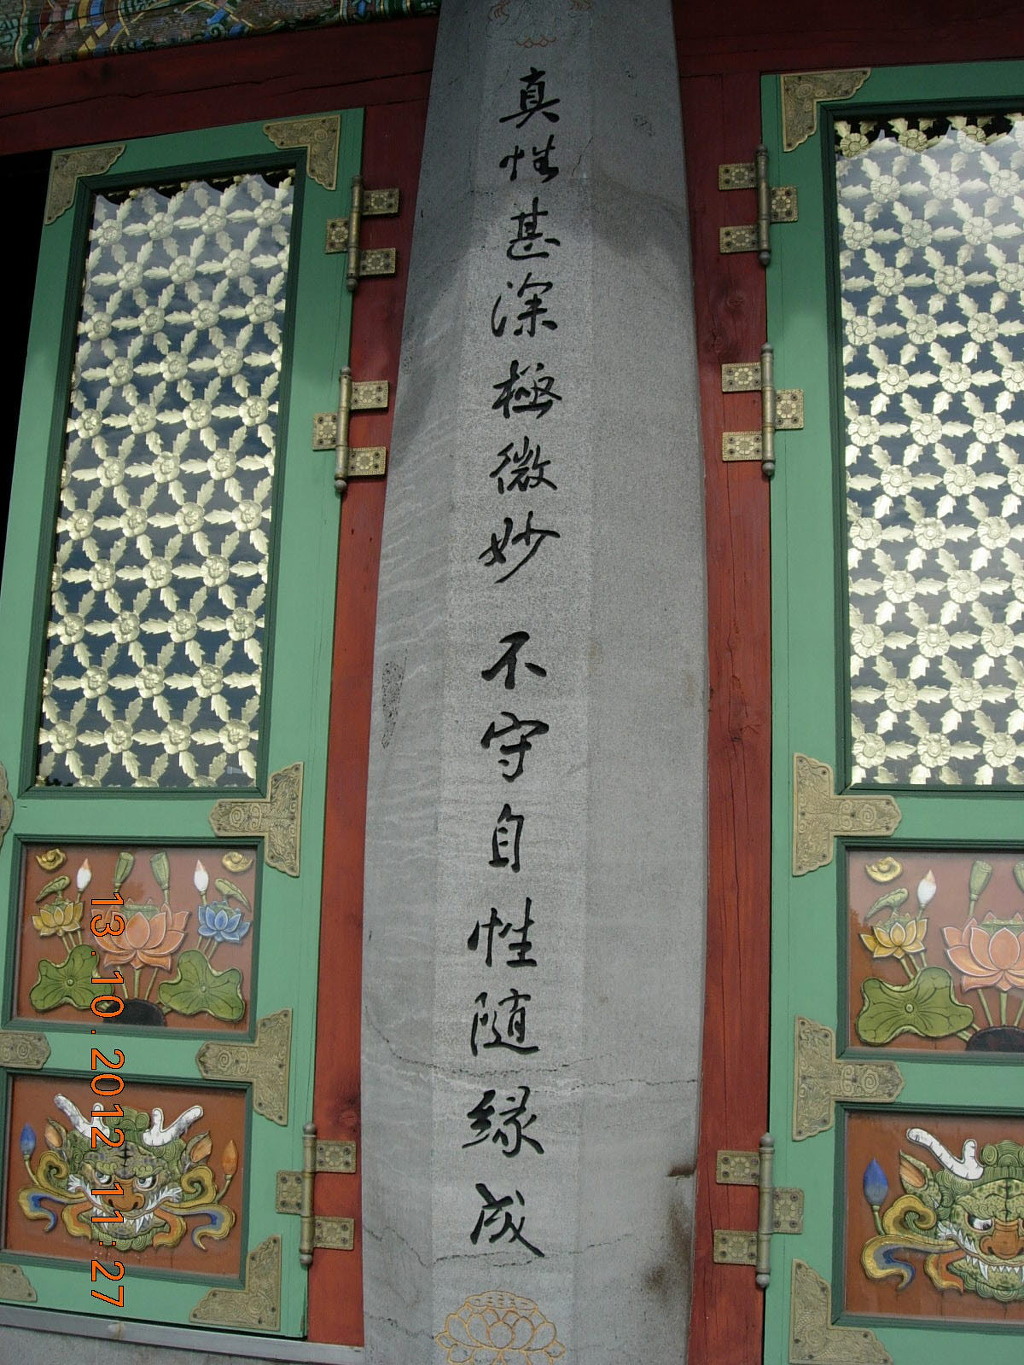 真性甚深極微妙 不守自性随縁成
13.10.2012 11:27